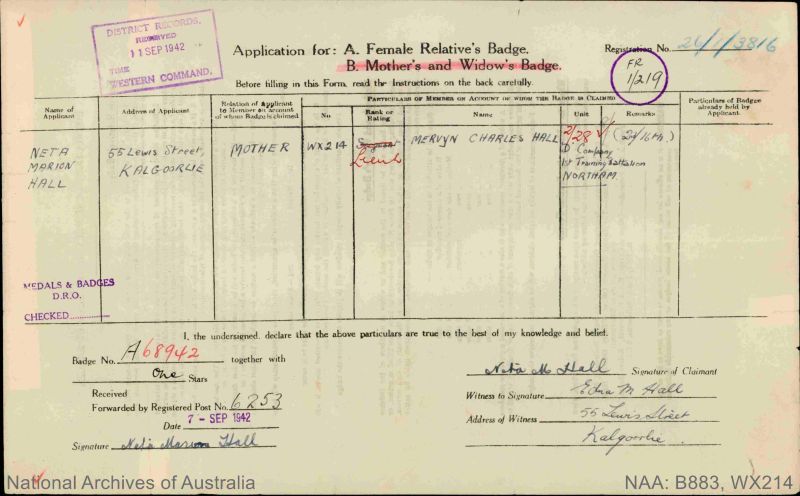 DISTRICT RECORDS,
RECEIVED
11 SEP 1942
TIME
WESTERN COMMAND.
Application for: A. Female Relative's Badge.
B. Mother's and Widow's Badge.
Registration No. 24/1/3816
FR
1/219
Before filling in this Form, read the Instructions on the back carefully.
Name of Applicant
Address of Applicant
Relation of Applicant to Member on account of whom Badge is claimed
PARTICULARS OF MEMBER ON ACCOUNT OF WHOM THE BADGE IS CLAIMED
No.
Rank or Rating
Name
Unit
Remarks
Particulars of Badges already held by Applicant.
NETA MARION HALL
55 Lewis Street, KALGOORLIE
MOTHER
WX214
Sergeant
Lieut
MERVYN CHARLES HALL
2/28
(2n/16th.)
D Company
1st Training Battalion
NORTHAM
MEDALS & BADGES
D.R.O.
CHECKED
I, the undersigned, declare that the above particulars are true to the best of my knowledge and belief.
Badge No. A68942 together with
One Stars
Received
Forwarded by Registered Post No. 6253
Date 7 - SEP 1942
Signature Neta Marion Hall
Neta M Hall Signature of Claimant
Witness to Signature Edna M Hall
Address of Witness 55 Lewis Street
Kalgoorlie.
National Archives of Australia
NAA: B883, WX214